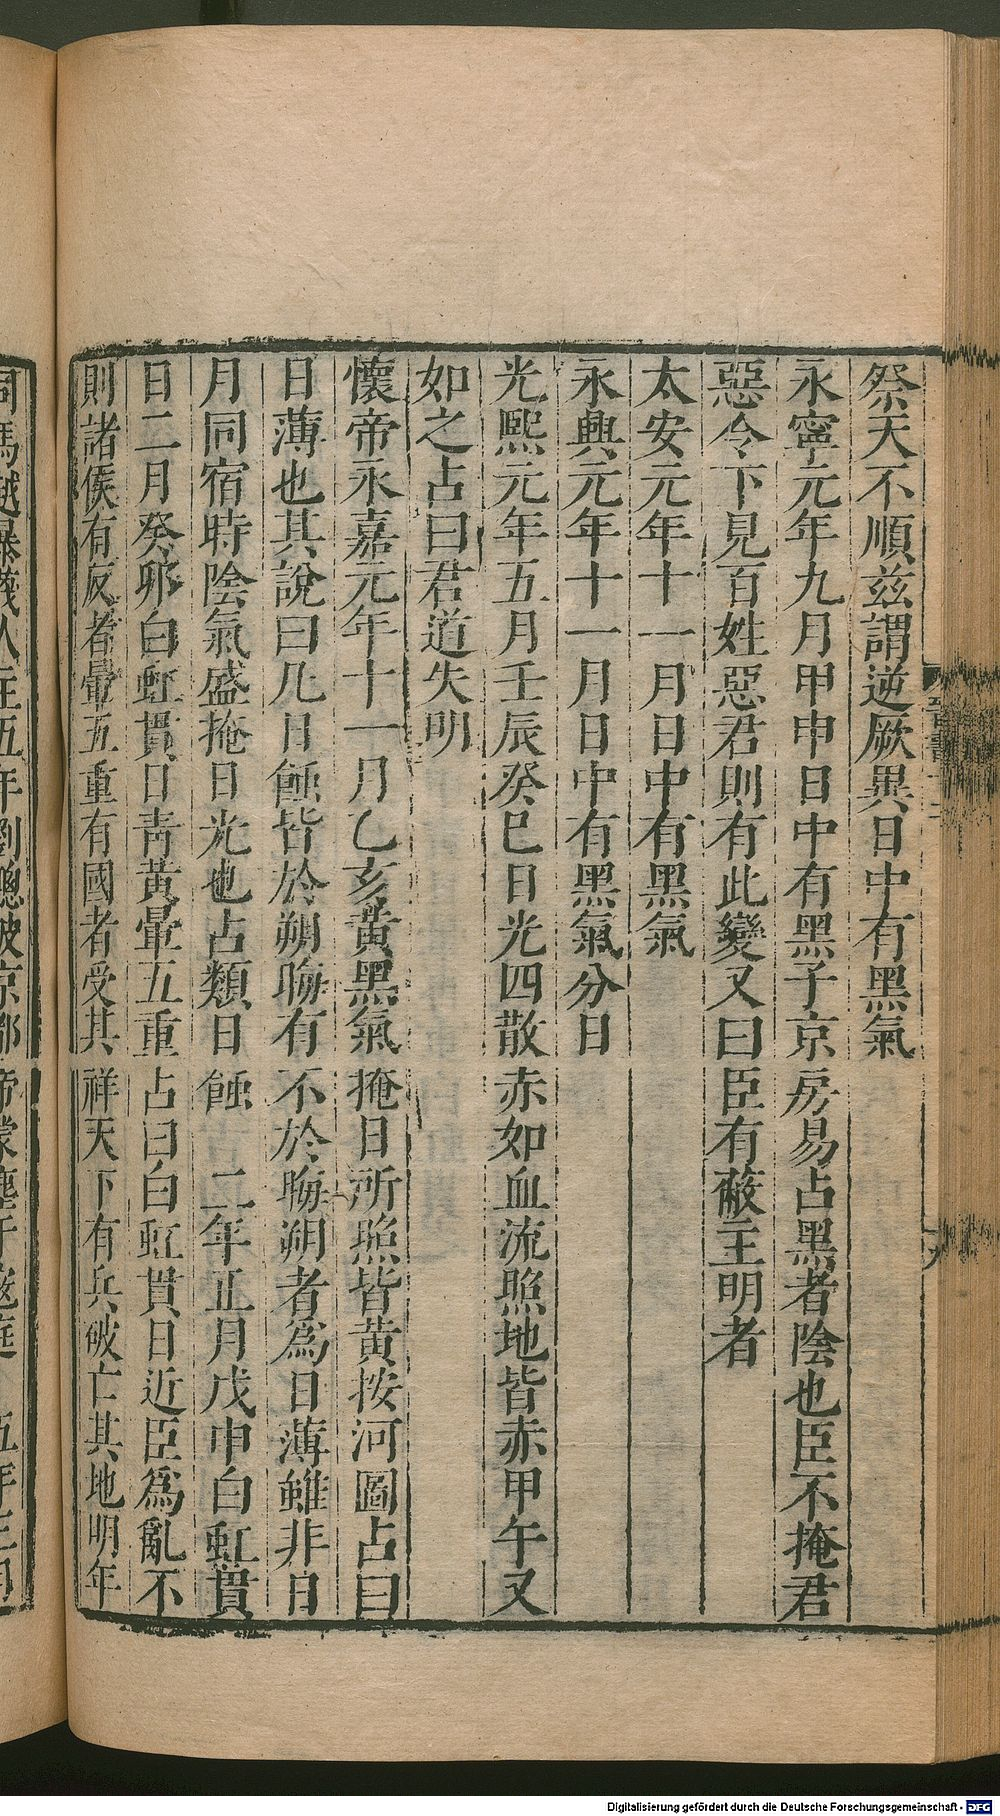 祭天不順茲謂逆厥異日中有黑氣
永寧元年九月甲申日中有黑子京房易占黑者陰也臣不掩君
惡令下見百姓惡君則有此變又曰臣有蔽主明者
太安元年十一月日中有黑氣
永興元年十一月日中有黑氣分日
光熙元年五月壬辰癸巳日光四散赤如血流照地皆赤甲午又
如之占曰君道失明
懷帝永嘉元年十一月乙亥黃黑氣掩日所照皆黃按河圖占曰
日薄也其說曰凡日蝕皆於朔晦有不於晦朔者為日薄雖非日
月同宿時陰氣盛掩日光也占類日蝕 二年正月戊申白虹貫
日二月癸卯白虹貫日青黃暈五重占曰白虹貫日近臣為亂不
則諸侯有反者暈五重有國者受其祥天下有兵破亡其地明年
司馬越暴蔑人主五年劉聰破京都帝蒙塵于寇庭 五年三月
Digitalisierung gefördert durch die Deutsche Forschungsgemeinschaft - DFG